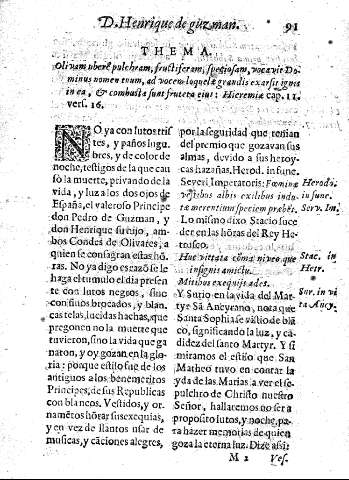 D. Henrique de guzman. 91
THEMA.
Olivam uberē pulchram, fructiferam, speciosam, vocavit Do-
minus nomen tuum, ad vocem loquelæ grandis exarsit ignis
in ea, & combusta sunt fruteta eius: Hieremiæ cap. 11.
vers. 16.
NO ya con lutos tris
tes, y paños lugu-
bres, y de color de
noche, testigos de la que cau
só la muerte, privando de la
vida, y luz a los dos ojos de
España, el valeroso Principe
don Pedro de Guzman, y
don Henrique su hijo, am-
bos Condes de Olivares, a
quien se consagran estas hō-
ras. No ya digo es razō se le
haga el tumulo el dia presen
te con lutos negros, sino
con finos brocados, y blan-
cas telas, lucidas hachas, que
pregonen no la muerte que
tuvieron, sino la vida que ga
naron, y oy gozan en la glo-
ria: porque estilo fue de los
antiguos a los benemeritos
Principes, de sus Republicas
con blancos Vestidos, y or-
namētos hōrar sus exequias,
y en vez de llantos usar de
musicas, y cāciones alegres,
por la seguridad que tenian
del premio que gozavan sus
almas, devido a sus heroy-
cas hazañas, Herod. in fune.
Severi Imperatoris: Fœminæ
vestibus albis exilibus indu-
tæ merentium speciem præbēt.
Lo mismo dixo Stacio suce
der en las hōras del Rey He-
troseo.
Huc vittata cōma niveo que
insignis amictu.
Mitibus exequijs ades.
Y Surio en la vida del Mar-
tyr Sā Ancyrano, nota que
Santa Sophia se vistio de blā
co, significando la luz, y cā-
didez del santo Martyr. Y si
miramos el estilo que San
Matheo tuvo en contar la
yda de las Marias a ver el se-
pulchro de Christo nuestro
Señor, hallaremos no ser a
proposito lutos, y noche, pa-
ra hazer memorias de quien
goza la eterna luz. Dize assi:
Herodo.
in fune.
Serv. Im.
Stac. in
Hetr.
Sur. in vi
ta Ancy.
M 2 Ves.